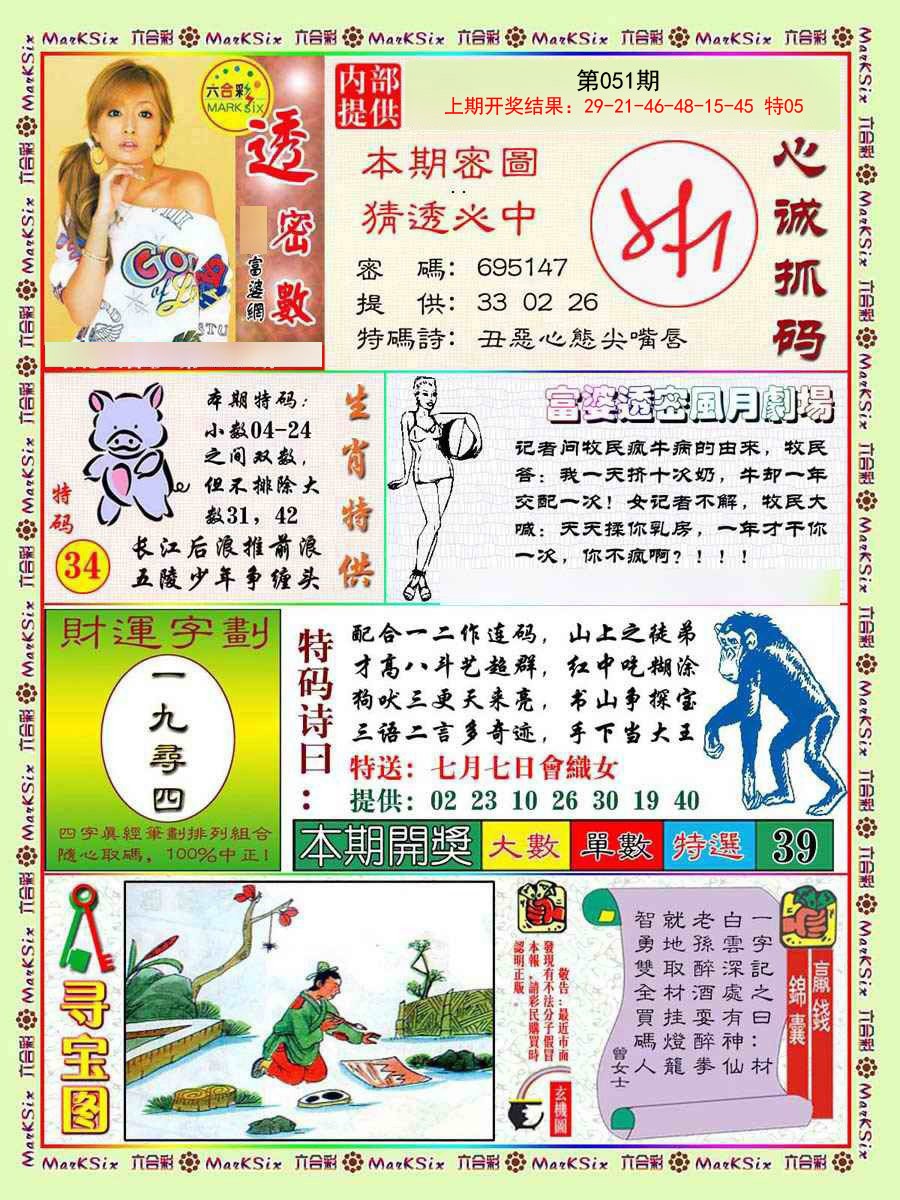 MarKSix 六合彩 MarKSix 六合彩 MarKSix 六合彩 MarKSix 六合彩 MarKSix 六合彩
六合彩
MARK six
透密數
富婆網
内部
提供
第051期
上期开奖结果：29-21-46-48-15-45 特05
本期密圖
猜透必中
密　碼：695147
提　供：33 02 26
特碼詩：丑惡心態尖嘴唇
心诚抓码
特码
34
本期特码：
小数04-24
之间双数，
但不排除大
数31，42
长江后浪推前浪
五陵少年争缠头
生肖特供
富婆透密風月劇場
记者问牧民疯牛病的由来，牧民
答：我一天挤十次奶，牛却一年
交配一次！女记者不解，牧民大
喊：天天揉你乳房，一年才干你
一次，你不疯啊？！！！
財運字劃
一九尋四
四字真經筆劃排列組合
隨心取碼，100%中正!
特码诗曰：
配合一二作连码，山上之徒弟
才高八斗艺超群，红中吃糊涂
狗吠三更天来亮，书山争探宝
三语二言多奇迹，手下当大王
特送：七月七日會織女
提供：02 23 10 26 30 19 40
本期開獎 大數 單數 特選 39
寻宝图
敬告：最近市面
發現有不法分子假冒
本報，請彩民購買時
認明正版。
玄機圖
贏錢
錦囊
一字記之曰：材
白雲深處有神仙
老孫醉酒耍醉拳
就地取材挂燈籠
智勇雙全買碼人
曾女士
MarKSix 六合彩 MarKSix 六合彩 MarKSix 六合彩 MarKSix 六合彩 MarKSix 六合彩